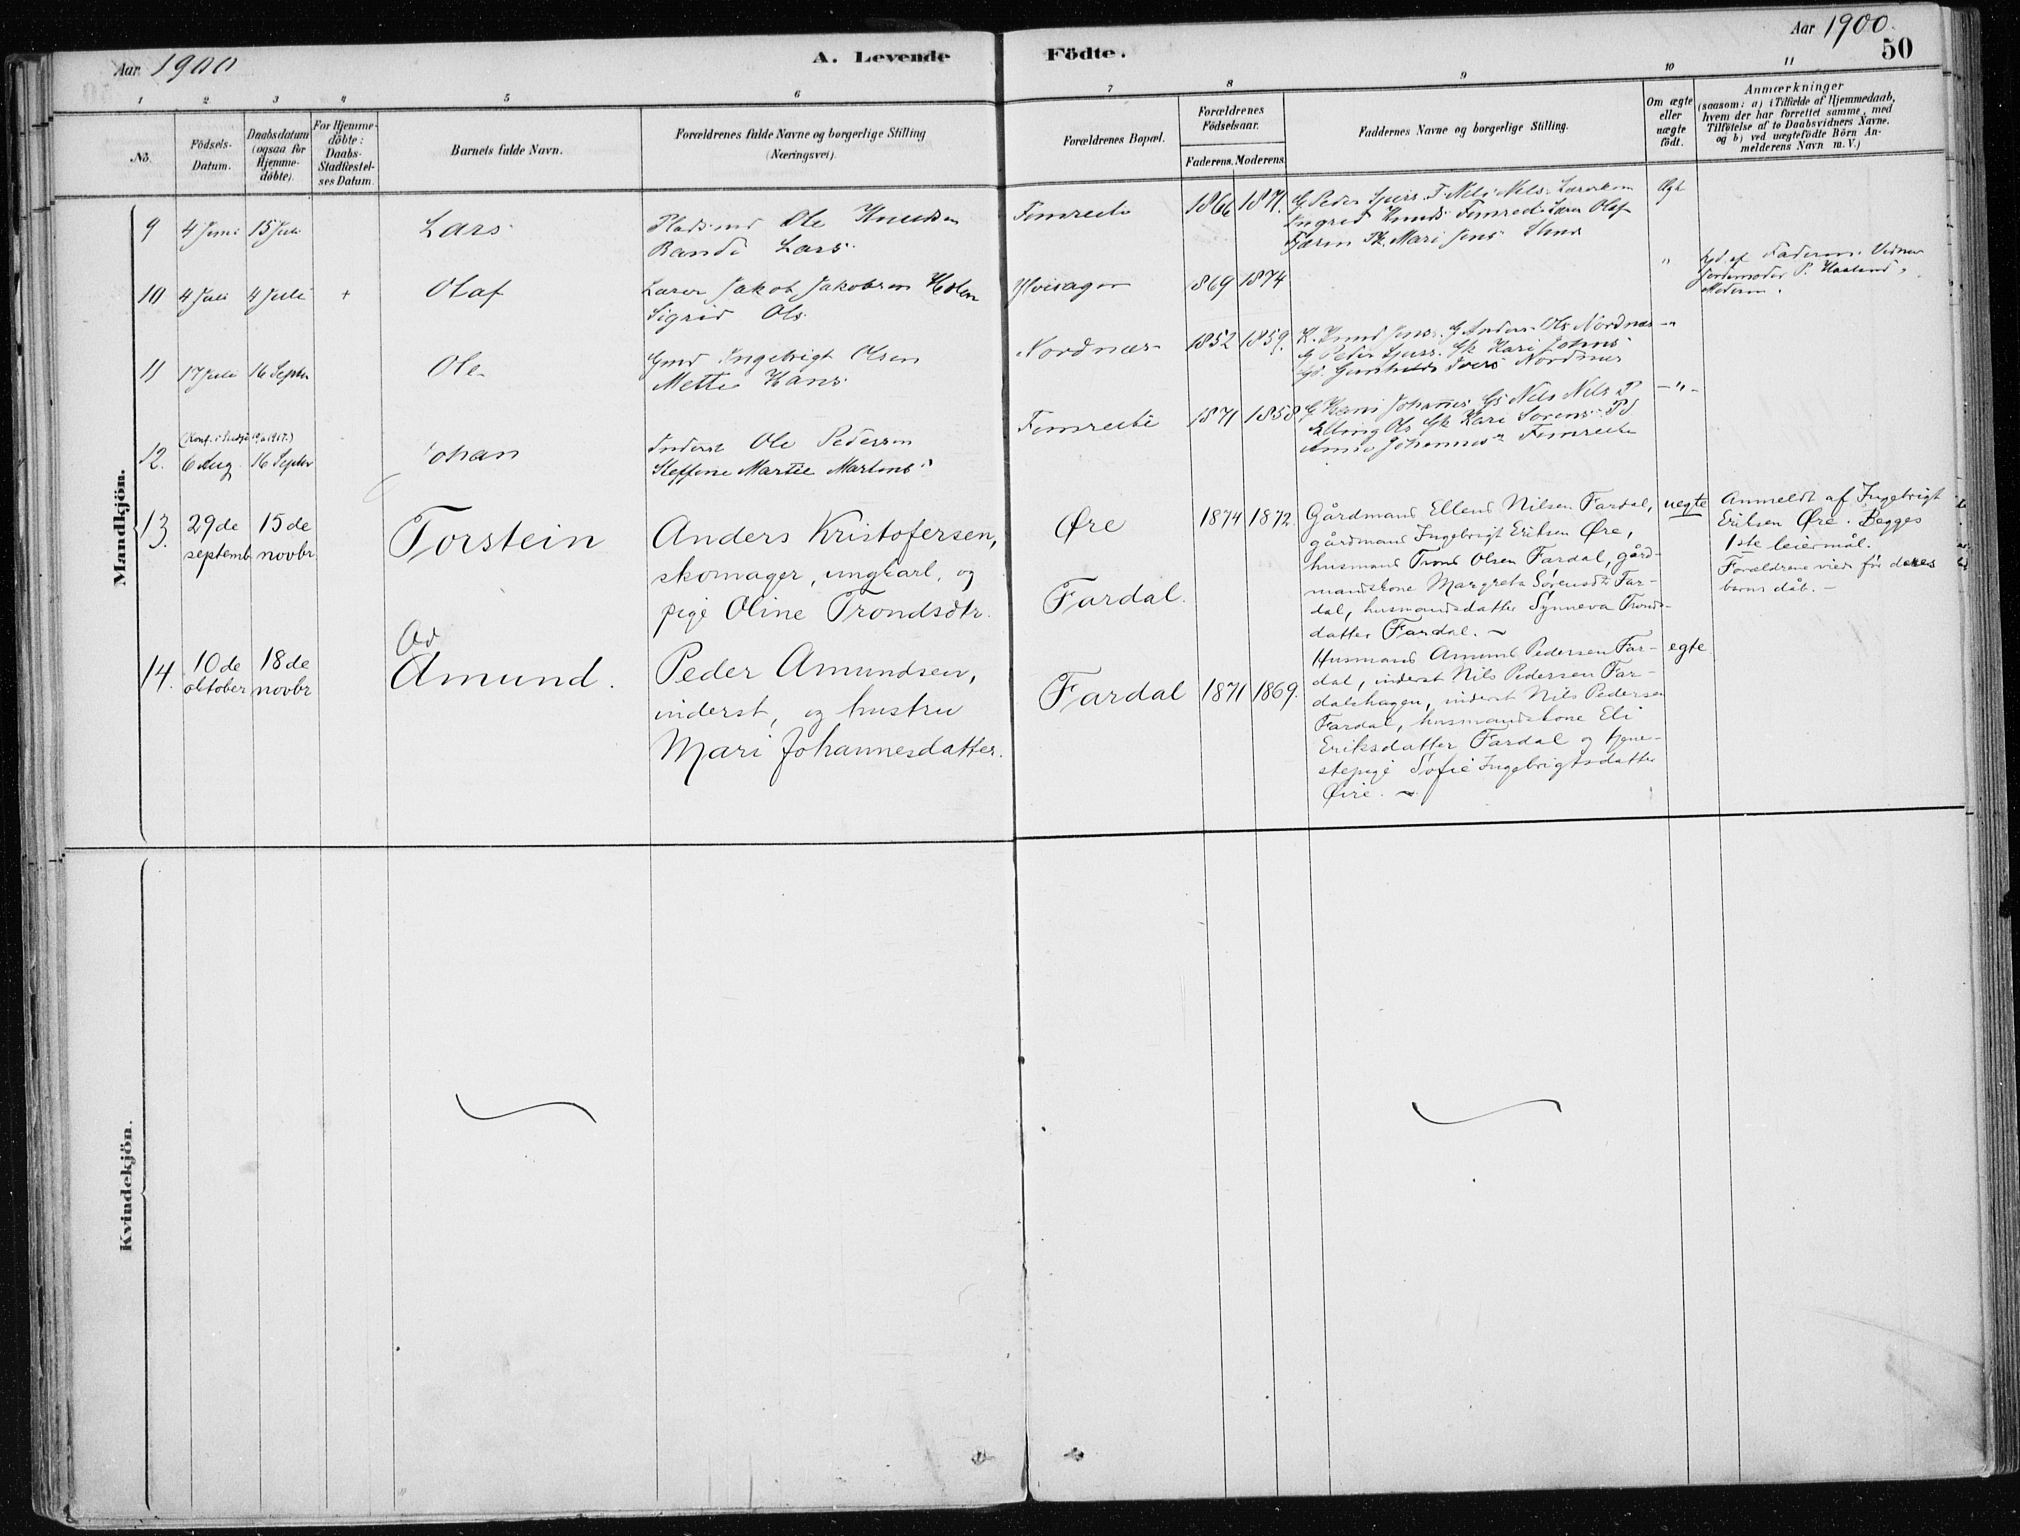 Aar 1900
A. Levende
Födte.
Aar 1900.
50
1 2 3 4 5 6 7 8 9 10 11
No.
Födsels-
Datum.
Daabsdatum
(ogsaa for
Hjemme-
döbte).
For Hjemme-
döbte:
Daabs-
Stadfæstel-
ses Datum.
Barnets fulde Navn.
Forældrenes fulde Navne og borgerlige Stilling
(Næringsvei).
Forældrenes Bopæl.
Forældrenes
Födselsaar.
Faderens. Moderens.
Faddernes Navne og borgerlige Stilling.
Om ægte
eller
uægte
födt.
Anmærkninger
(saasom: a) i Tilfælde af Hjemmedaab,
hvem der har forrettet samme, med
Tilföielse af to Daabsvidners Navne.
og b) ved uægtefödte Börn An-
melderens Navn m. V.)
Mandkjön.
9
4 Juni
15 Juli
Lars
Pladsmd Ole Knudsen
Randi Lars
Fimreite
1866 1871.
Ingrid Knuds Fimreite Lærer Olaf
Mari Jens
Ægt
10
4 Juli
4 Juli
+
Olaf
Lærer Jakob Jakobsen Holen
Sigrid Ols
869 1874
"
Faderen.
Jordemoder P. Haaland,
Moderen.
11
17 Juli
16 Septr
Ole
Gmd Ingebrigt Olsen
Mette Hans
Nordnæs
1852 1859.
K. Knud Jens. G Anders Ols Nordnæs
G Peder Gk Kari Johns
Gunhild Ivers Nordnæs
-"-
12.
6 Aug.
16 Septr
Johan
Inderst Ole Pedersen
Steffine Martie Martins
Fimreite
1871 1858
G Hans Johannes Gs Nels Nels
Elling Ols Gk Kari Sørens
Anna Johannes Fimreite
-"-
13.
29de
septemb.
15de
novbr.
Torstein
Anders Kristofersen,
skomager, ungkarl, og
pige Oline Trondsdtr.
Øre
Fardal.
1874 1872.
Gårdmand Ellend Nilsen Fardal,
gårdmand Ingebrigt Eriksen Øre,
husmand Trond Olsen Fardal, gård-
mandskone Margreta Sørensdtr Far-
dal, husmandsdatter Synneva Tronds-
datter Fardal. ~
uegte
Anmeldt af Ingebrigt
Eriksen Øre. Begges
1ste leiermål.
Forældrene viede før deres
barns dåb. –
14.
10de
oktober
18de
novbr
Od
Amund.
Peder Amundsen,
inderst, og hustru
Mari Johannesdatter.
Fardal
1871 1869.
Husmand Amund Pedersen Far-
dal, inderst Nils Pedersen Far-
dalshagen, inderst Nils Pedersen
Fardal, husmandskone Eli
Eriksdatter Fardal og tjene-
stepige Sofie Ingebrigtsdatter
Øire. ~
egte
Kvindekjön.